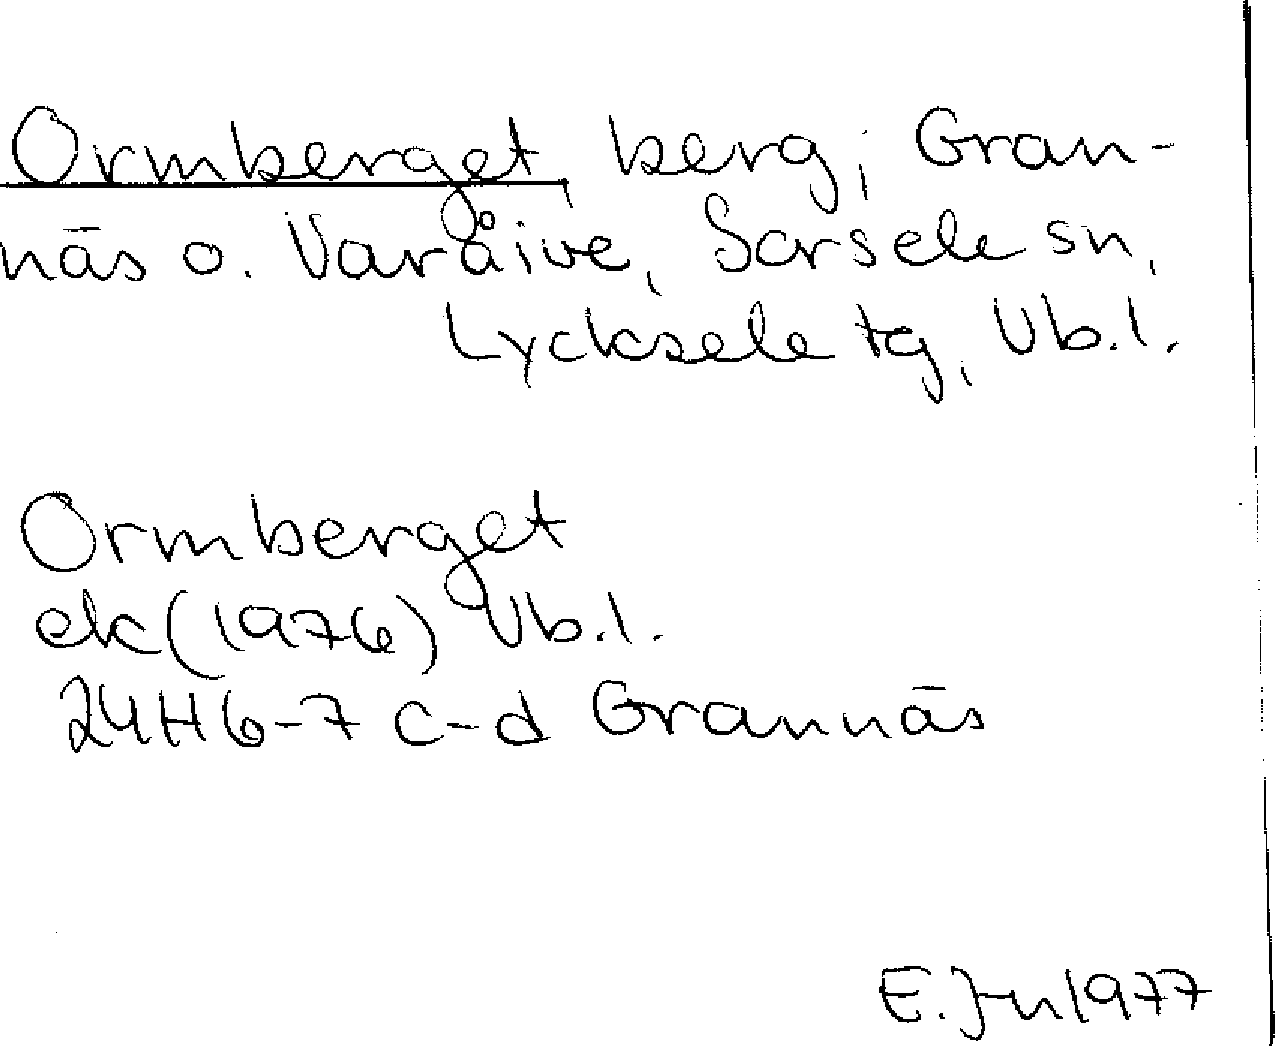 Ormberget, berg, Gran-
näs o. Varåive, Sorsele sn,
Lycksele tg, Vb.l.
Ormberget
ek(1976) Vb.l.
24H6-7 c-d Grannäs
E. Jn 1977